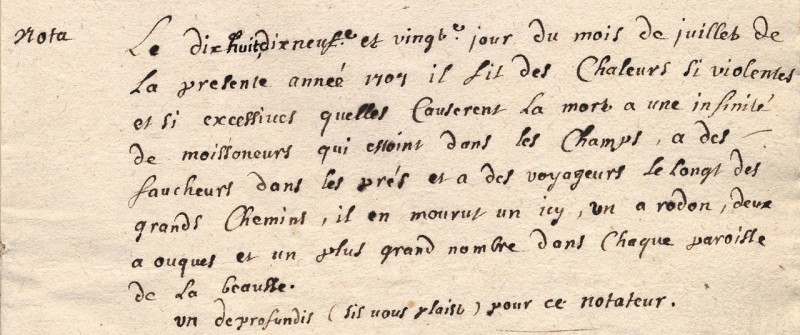 Nota
Le dix huit, dixneuf.e et vingt.e jour du mois de juillet de
La presente année 1707 il fit des Chaleurs si violentes
et si excessives quelles Causerent La mort a une infinité
de moissoneurs qui estoint dans les Champs, a des
faucheurs dans les prés et a des voyageurs Le longt des
grands Chemins, il en mourut un icy, un a rodon, deux
a ouques et un plus grand nombre dans Chaque paroisse
de La beausse.
un deprofundis (sis vous plaist) pour ce notateur.